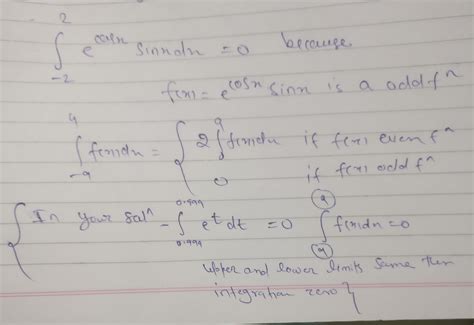 ∫₋₂² e^cosx sinx dx = 0 because
f(x) = e^cosx sinx is a odd fⁿ
∫₋ₐᵃ f(x) dx = { 2 ∫₀ᵃ f(x) dx if f(x) even fⁿ
0 if f(x) odd fⁿ
{ In your solⁿ - ∫₀.₉₉₉^0.999 eᵗ dt = 0 ∫ₐᵃ f(x) dx = 0
upper and lower limits same then
integration zero }